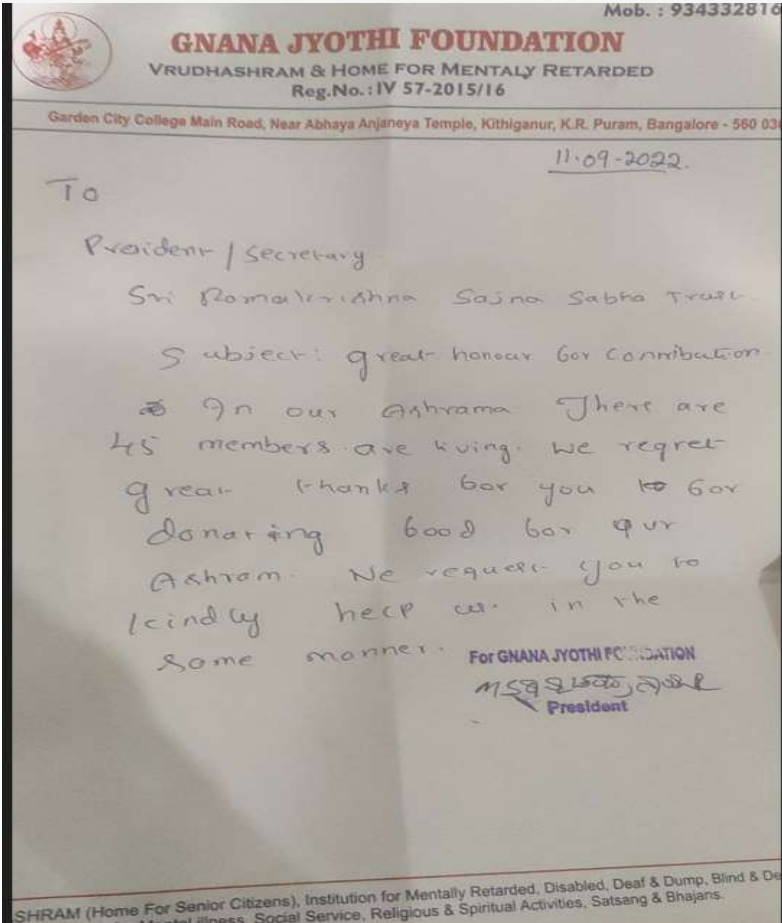 Mob. : 934332816
GNANA JYOTHI FOUNDATION
VRUDHASHRAM & HOME FOR MENTALY RETARDED
Reg.No.: IV 57-2015/16
Garden City College Main Road, Near Abhaya Anjaneya Temple, Kithiganur, K.R. Puram, Bangalore - 560 03
11-09-2022.
To
President / Secretary
Sri Ramakrishna Sajna Sabha Trust.
Subject: great honour for Connibution
In our Ashrama There are
45 members are living. we regret
great thanks for you to for
donating food for our
Ashram. We request you to
kindly help us. in the
same manner.
For GNANA JYOTHI FOUNDATION
President
SHRAM (Home For Senior Citizens), Institution for Mentally Retarded, Disabled, Deaf & Dump, Blind & De
Mental illness, Social Service, Religious & Spiritual Activities, Satsang & Bhajans.